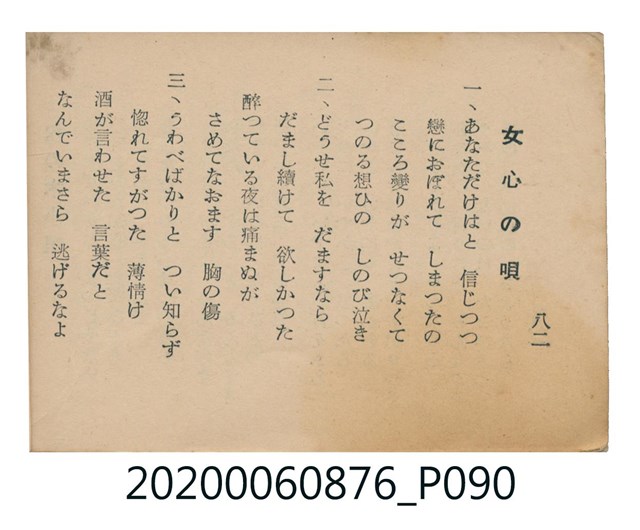 女心の唄
八二
一、あなただけはと 信じつつ
戀におぼれて しまつたの
こころ變りが せつなくて
つのる想ひの しのび泣き
二、どうせ私を だますなら
だまし續けて 欲しかつた
醉つている夜は痛まぬが
さめてなおます 胸の傷
三、うわべばかりと つい知らず
惚れてすがつた 薄情け
酒が言わせた 言葉だと
なんでいまさら 逃げるなよ
20200060876_P090